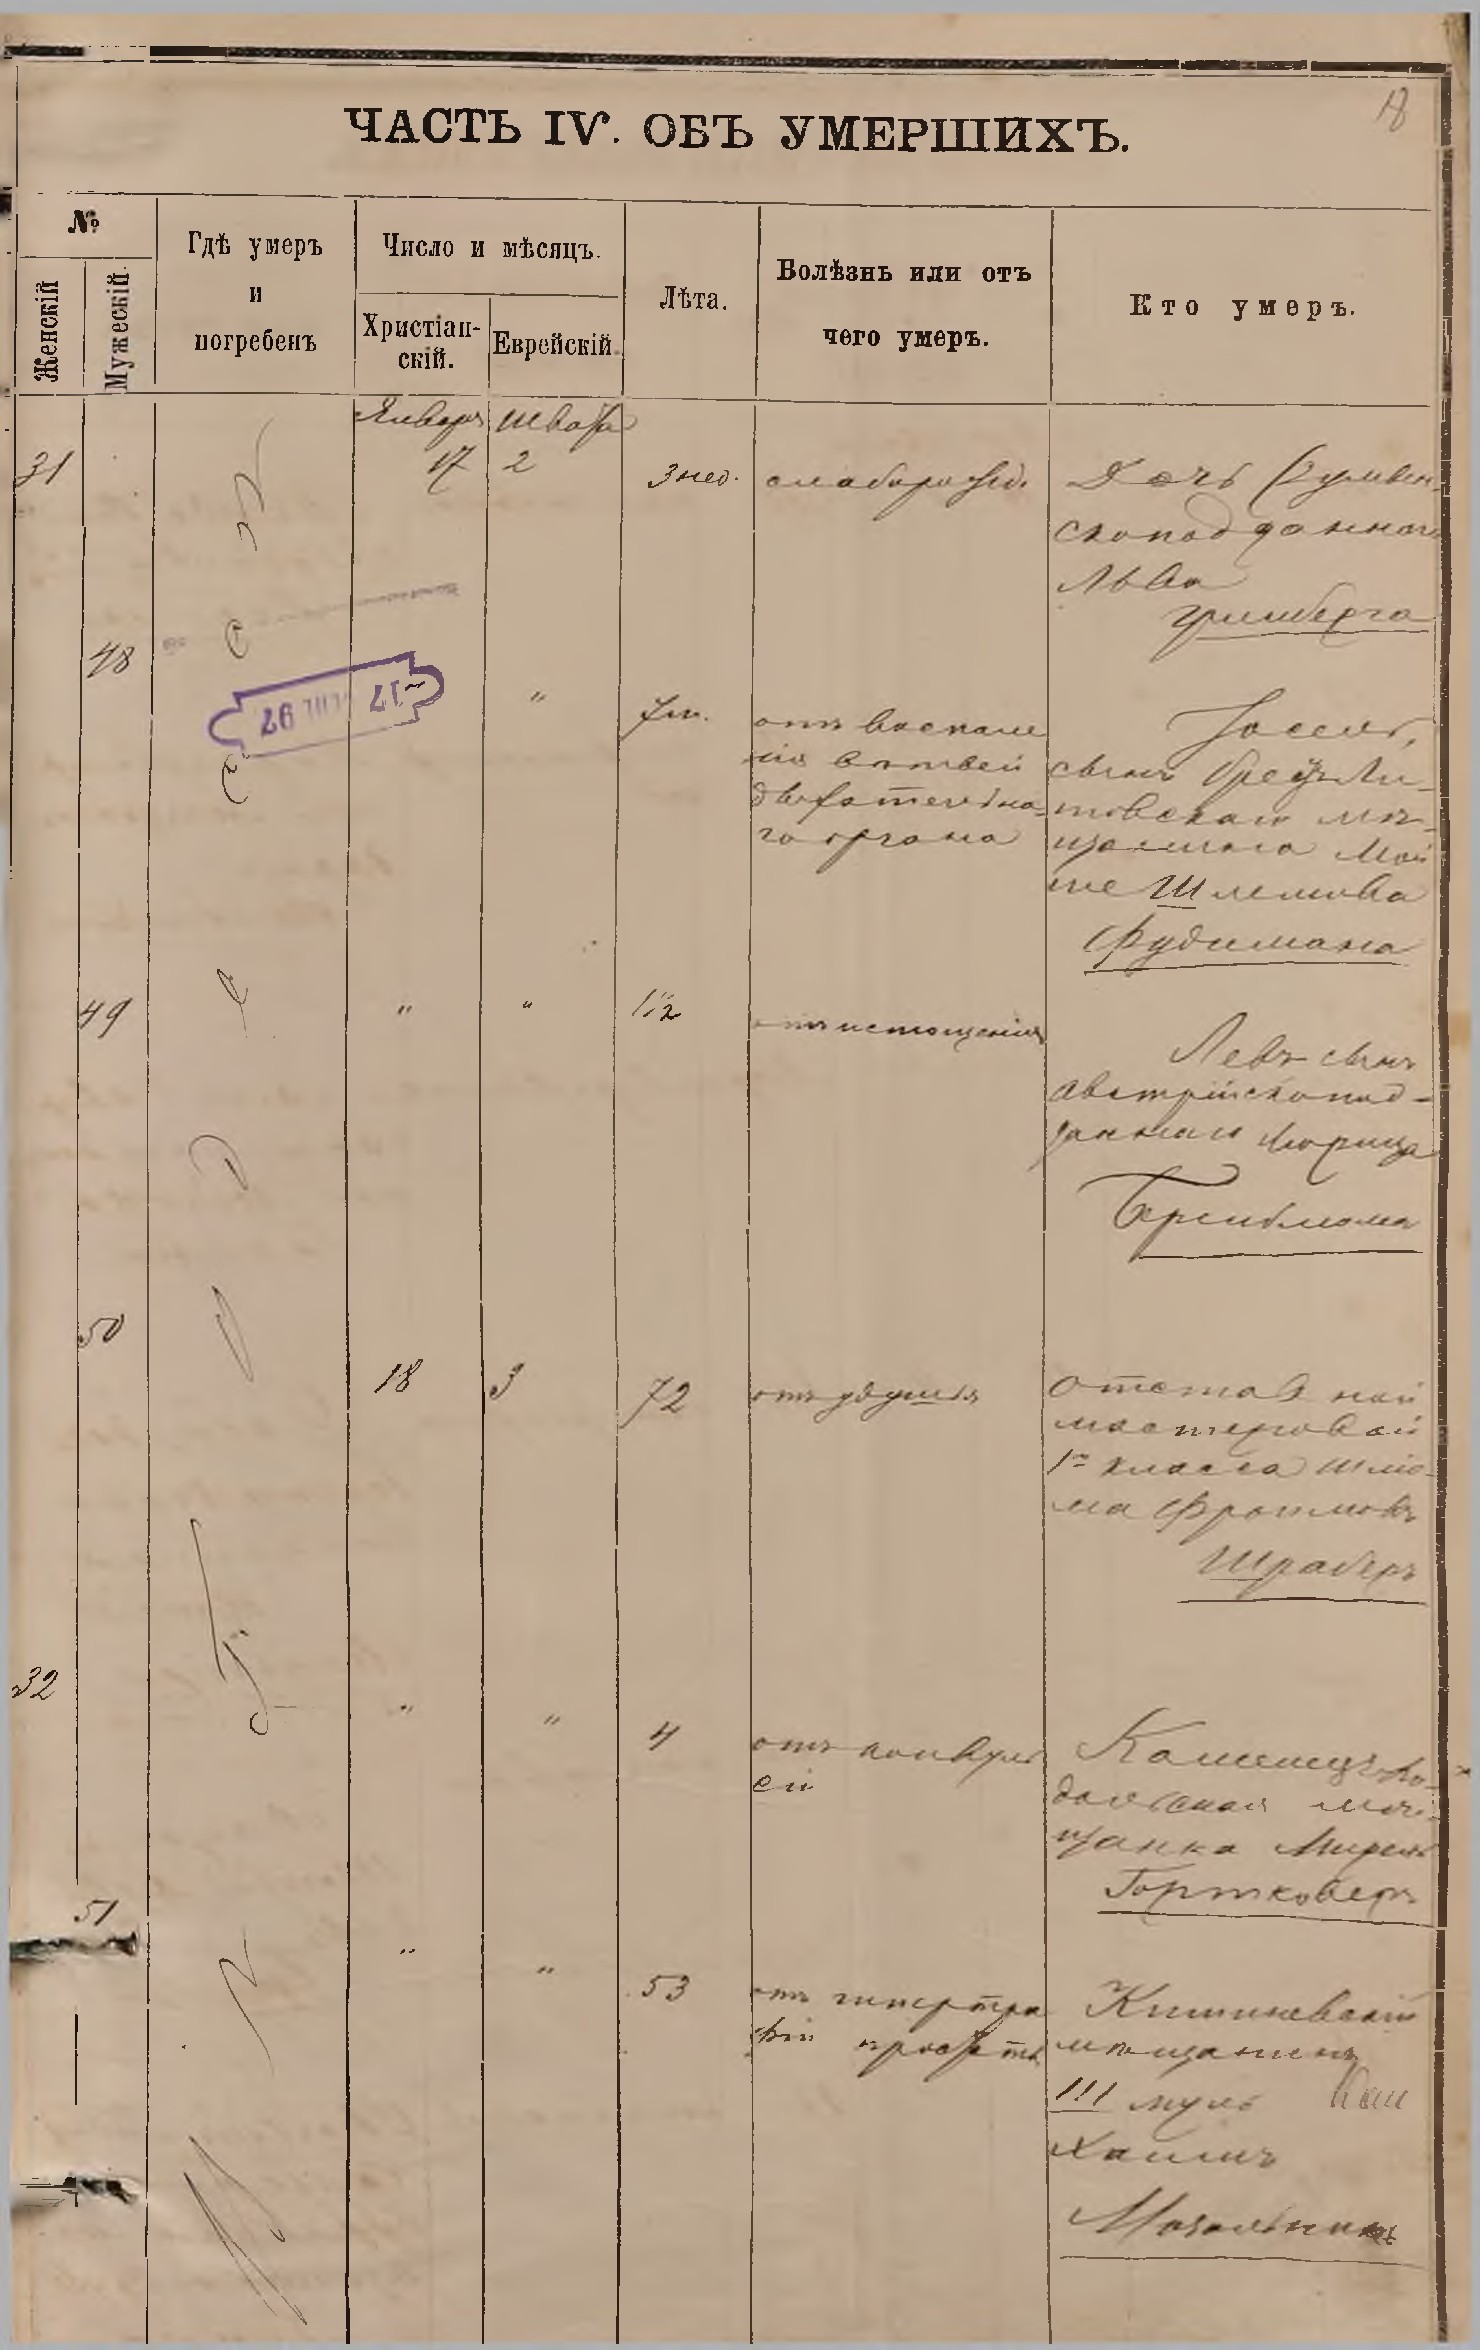 18
ЧАСТЬ IV. ОБЪ УМЕРШИХЪ.
№
Женскій
Мужескій.
Гдѣ умеръ
и
погребенъ
Число и мѣсяцъ.
Христіан-
скій.
Еврейскій.
Лѣта.
Болѣзнь или отъ
чего умеръ.
Кто умеръ.
Январь
Швата
31
17
2
3 нед.
слаборожд.
Дочь Румын-
скоподданнаго
Льва
Гринберга
48
17
97
"
7 м.
отъ воспале
нія
дыхательна-
го органа
Іосель,
сынъ Брестъ Ли-
товскаго мѣ-
щанина Мой
ше Шлемова
Фудимана
49
"
"
1 1/2
отъ истощенія
Левъ сынъ
австрійскопод-
даннаго Морица
50
18
3
72
отъ удушья
Отставной
мастеровой
1го класса Шлё-
ма Фроимовъ
Шраберъ
32
"
"
4
отъ конвуль
сій
Каменецъ По-
дольская мѣ-
щанка Мирель
Гортковеръ
51
"
"
53
отъ гипертро
фіи простты
Кишиневскій
мѣщанинъ
Шмуль
Хаимъ